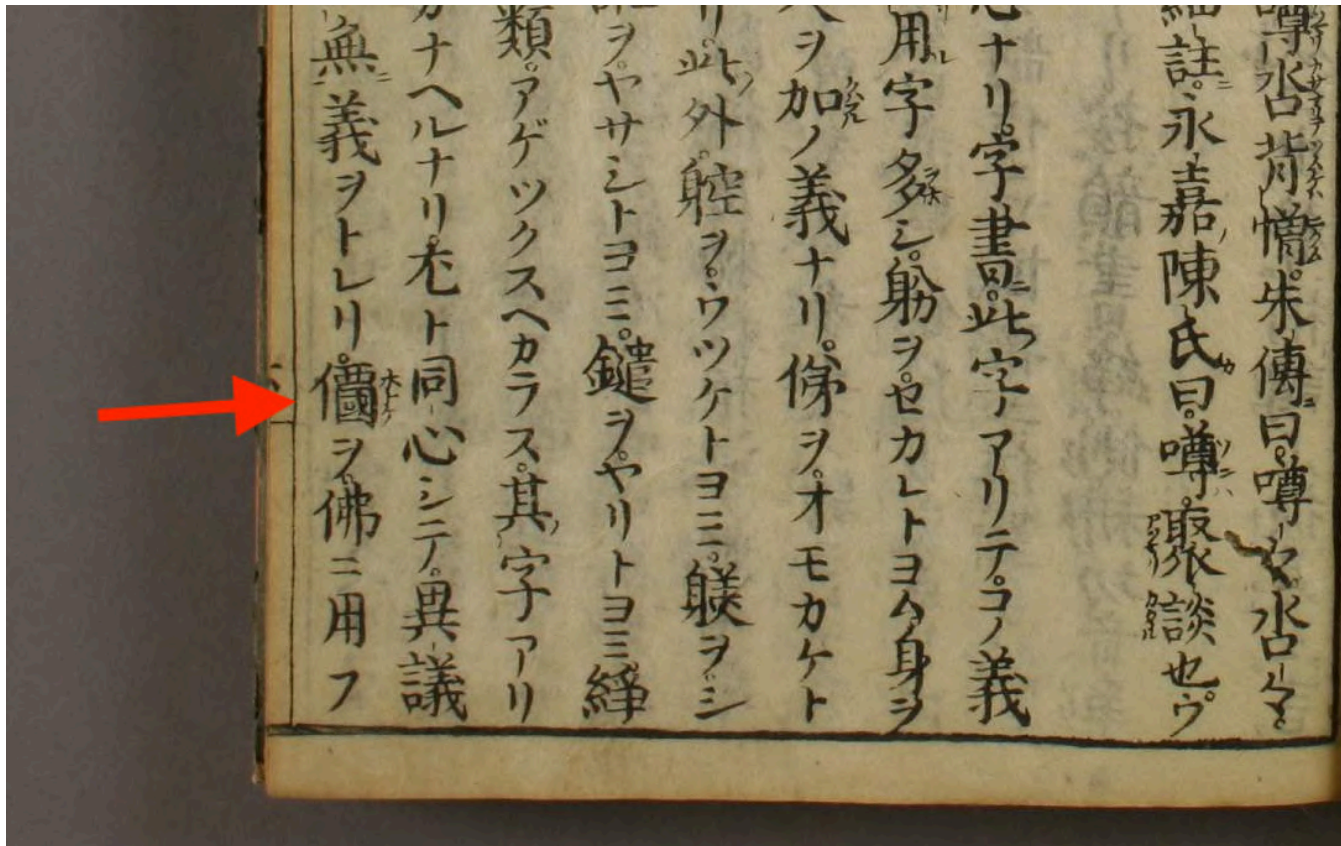 噂沓背憎。朱傳ニ曰。噂
細註ニ。永嘉ノ陳氏カ曰。噂ハ。聚談也。ウ
ナリ。字書ニ曰。此字ノアリテ。コノ義
用字多シ。躮ヲ。セカレトヨム身ヲ
ヲ加ノ義ナリ。俤ヲ。オモカケト
リ。此外。躻ヲ。ウツケトヨミ。躾ヲシ
ヲヤサシトヨミ。鑓ヲ。ヤリトヨミ縡
類。アゲツクスヘカラス。其ノ字アリ
カナヘルナリ。尤ト同心シテ。異議
無義ヲトレリ。⿰亻國ヲ。佛ニ用フ